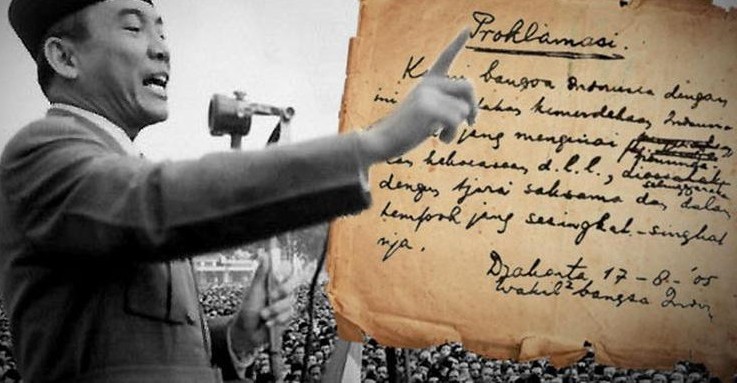 Proklamasi.
Kami bangsa Indonesia dengan
ini kemerdekaan Indonesia
jang mengenai
kekoeasaan d.l.l.,
diselenggarakan
dengan tjara saksama dan dalam
tempoh jang sesingkat-singkat
nja.
Djakarta 17-8-'05
Wakil2 bangsa Indon